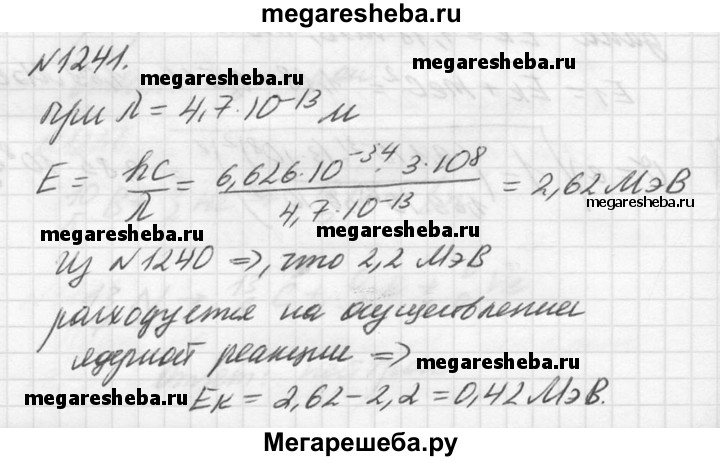 megaresheba.ru
N1241.
megaresheba.ru
при λ = 4,7·10⁻¹³ м
megaresheba.ru
E = hc/λ = 6,626·10⁻³⁴·3·10⁸/4,7·10⁻¹³ = 2,62 МэВ
megaresheba.ru
megaresheba.ru
megaresheba.ru
Из N1240 =>, что 2,2 МэВ
расходуется на осуществление
ядерной реакции =>
megaresheba.ru
megaresheba.ru
Eк = 2,62-2,2 = 0,42 МэВ.
Мегарешеба.ру